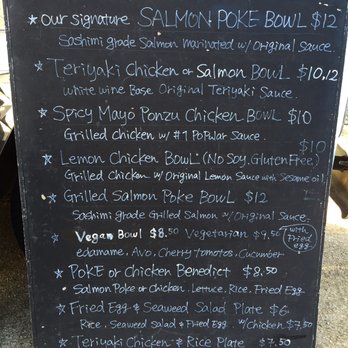 * our signature SALMON POKE BOWL $12
Sashimi grade Salmon marinated w/ Original Sauce.
* Teriyaki Chicken or Salmon BOWL $10,12
white wine Base Original Teriyaki Sauce.
* Spicy Mayo Ponzu Chicken BOWL $10
Grilled chicken w/ #1 PoPular Sauce.
$10
* Lemon Chicken BOWL (No Soy. Gluten Free)
Grilled Chicken w/ Original Lemon Sauce with Sesame oil
* Grilled Salmon Poke Bowl $12
Sashimi grade Grilled Salmon w/ Original Sauce.
* Vegan Bowl $8.50 Vegetarian $9.50 with Fried egg
edamame, Avo, Cherry tomatos, Cucumber
* POKE or Chicken Benedict $8.50
Salmon Poke or Chicken. Lettuce. Rice. Fried Egg
* Fried Egg & Seaweed Salad Plate $6
Rice, Seaweed Salad & Fried Egg w/chicken $7.50
* Teriyaki Chicken & Rice Plate $7.50